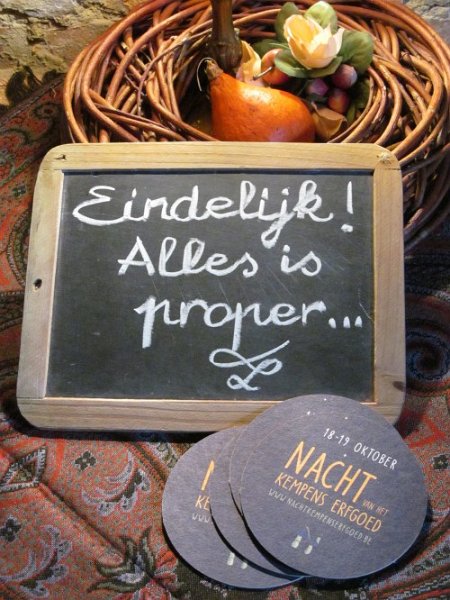 Eindelijk!
Alles is
proper...
18-19 OKTOBER
NACHT
VAN HET
KEMPENS ERFGOED
WWW.NACHTKEMPENSERFGOED.BE
N
KEMPE
WWW.N